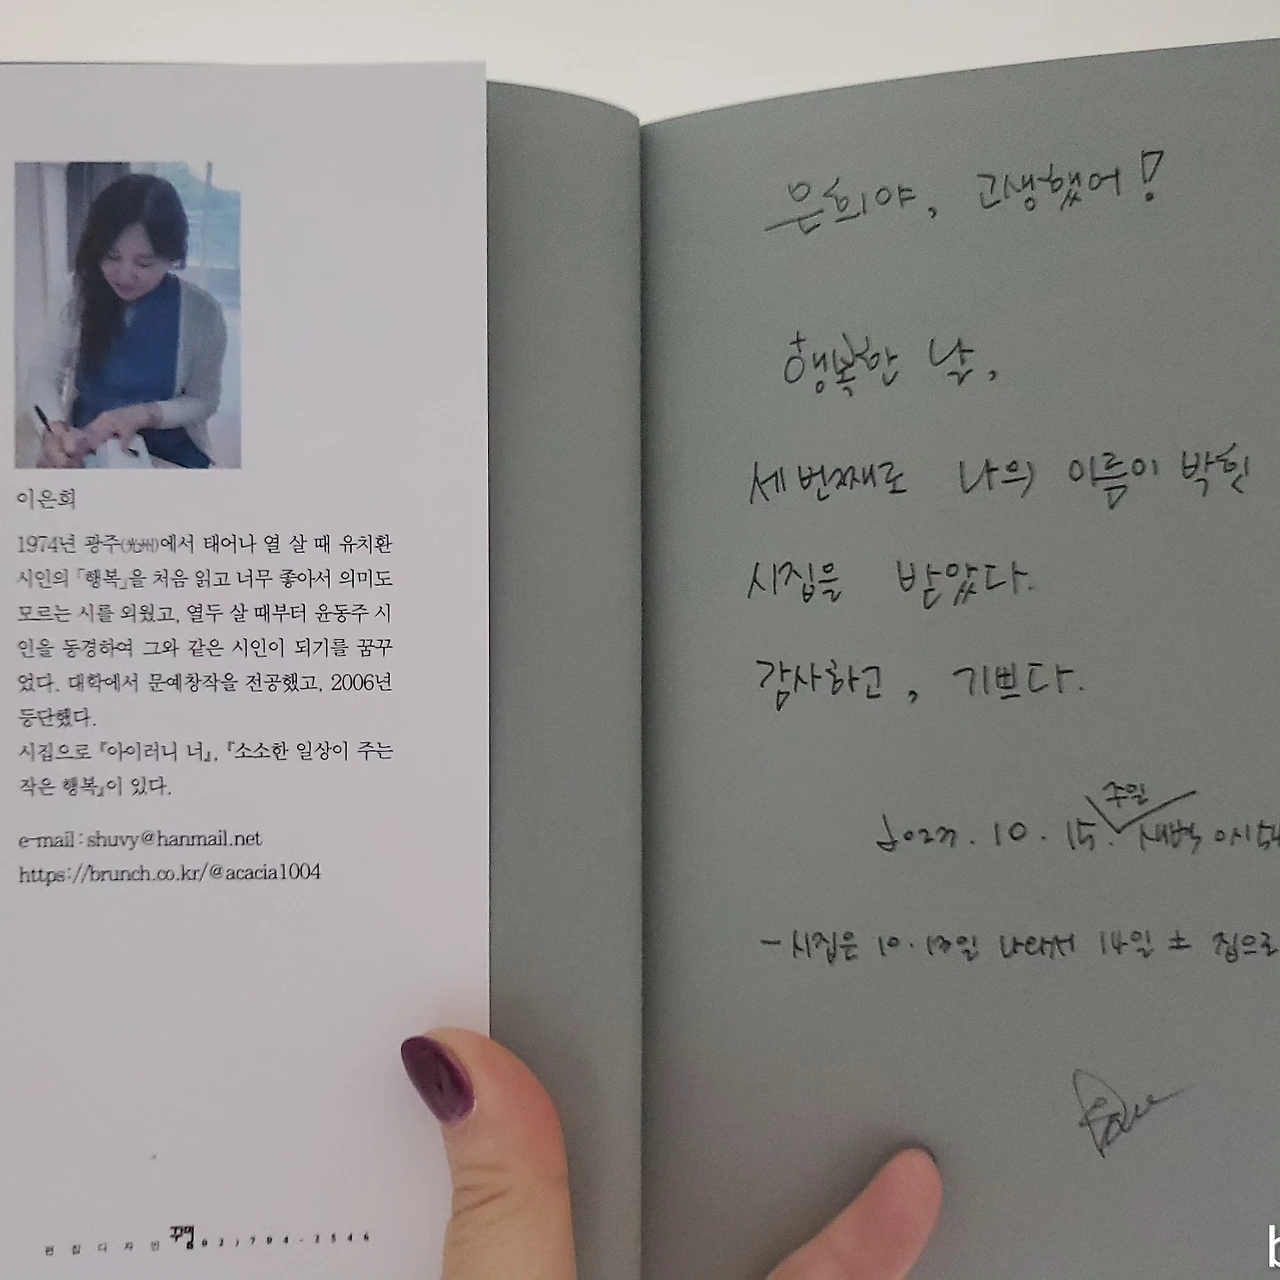 이은희
1974년 광주(光州)에서 태어나 열 살 때 유치환
시인의 「행복」을 처음 읽고 너무 좋아서 의미도
모르는 시를 외웠고, 열두 살 때부터 윤동주 시
인을 동경하여 그와 같은 시인이 되기를 꿈꾸
었다. 대학에서 문예창작을 전공했고, 2006년
등단했다.
시집으로 『아이러니 너』, 『소소한 일상이 주는
작은 행복』이 있다.
e-mail : shuvy@hanmail.net
https://brunch.co.kr/@acacia1004
편집디자인 꾸밈 02)794-2546
은희야, 고생했어!
행복한 날,
세번째로 나의 이름이 박힌
시집을 받았다.
감사하고, 기쁘다.
주일
10. 15. 새벽
- 시집은 10. 13일 나와서 14일 土 집으로